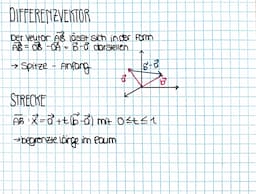 DIFFERENZVEKTOR
Der Vektor AB⃗ lässt sich in der Form
AB⃗ = OB⃗ - OA⃗ = b⃗ - a⃗ darstellen
→ Spitze - Anfang
b⃗-a⃗
a⃗
b⃗
STRECKE
AB: x⃗ = a⃗ + t(b⃗-a⃗) mit 0≤t≤1
→ begrenzte Länge im Raum